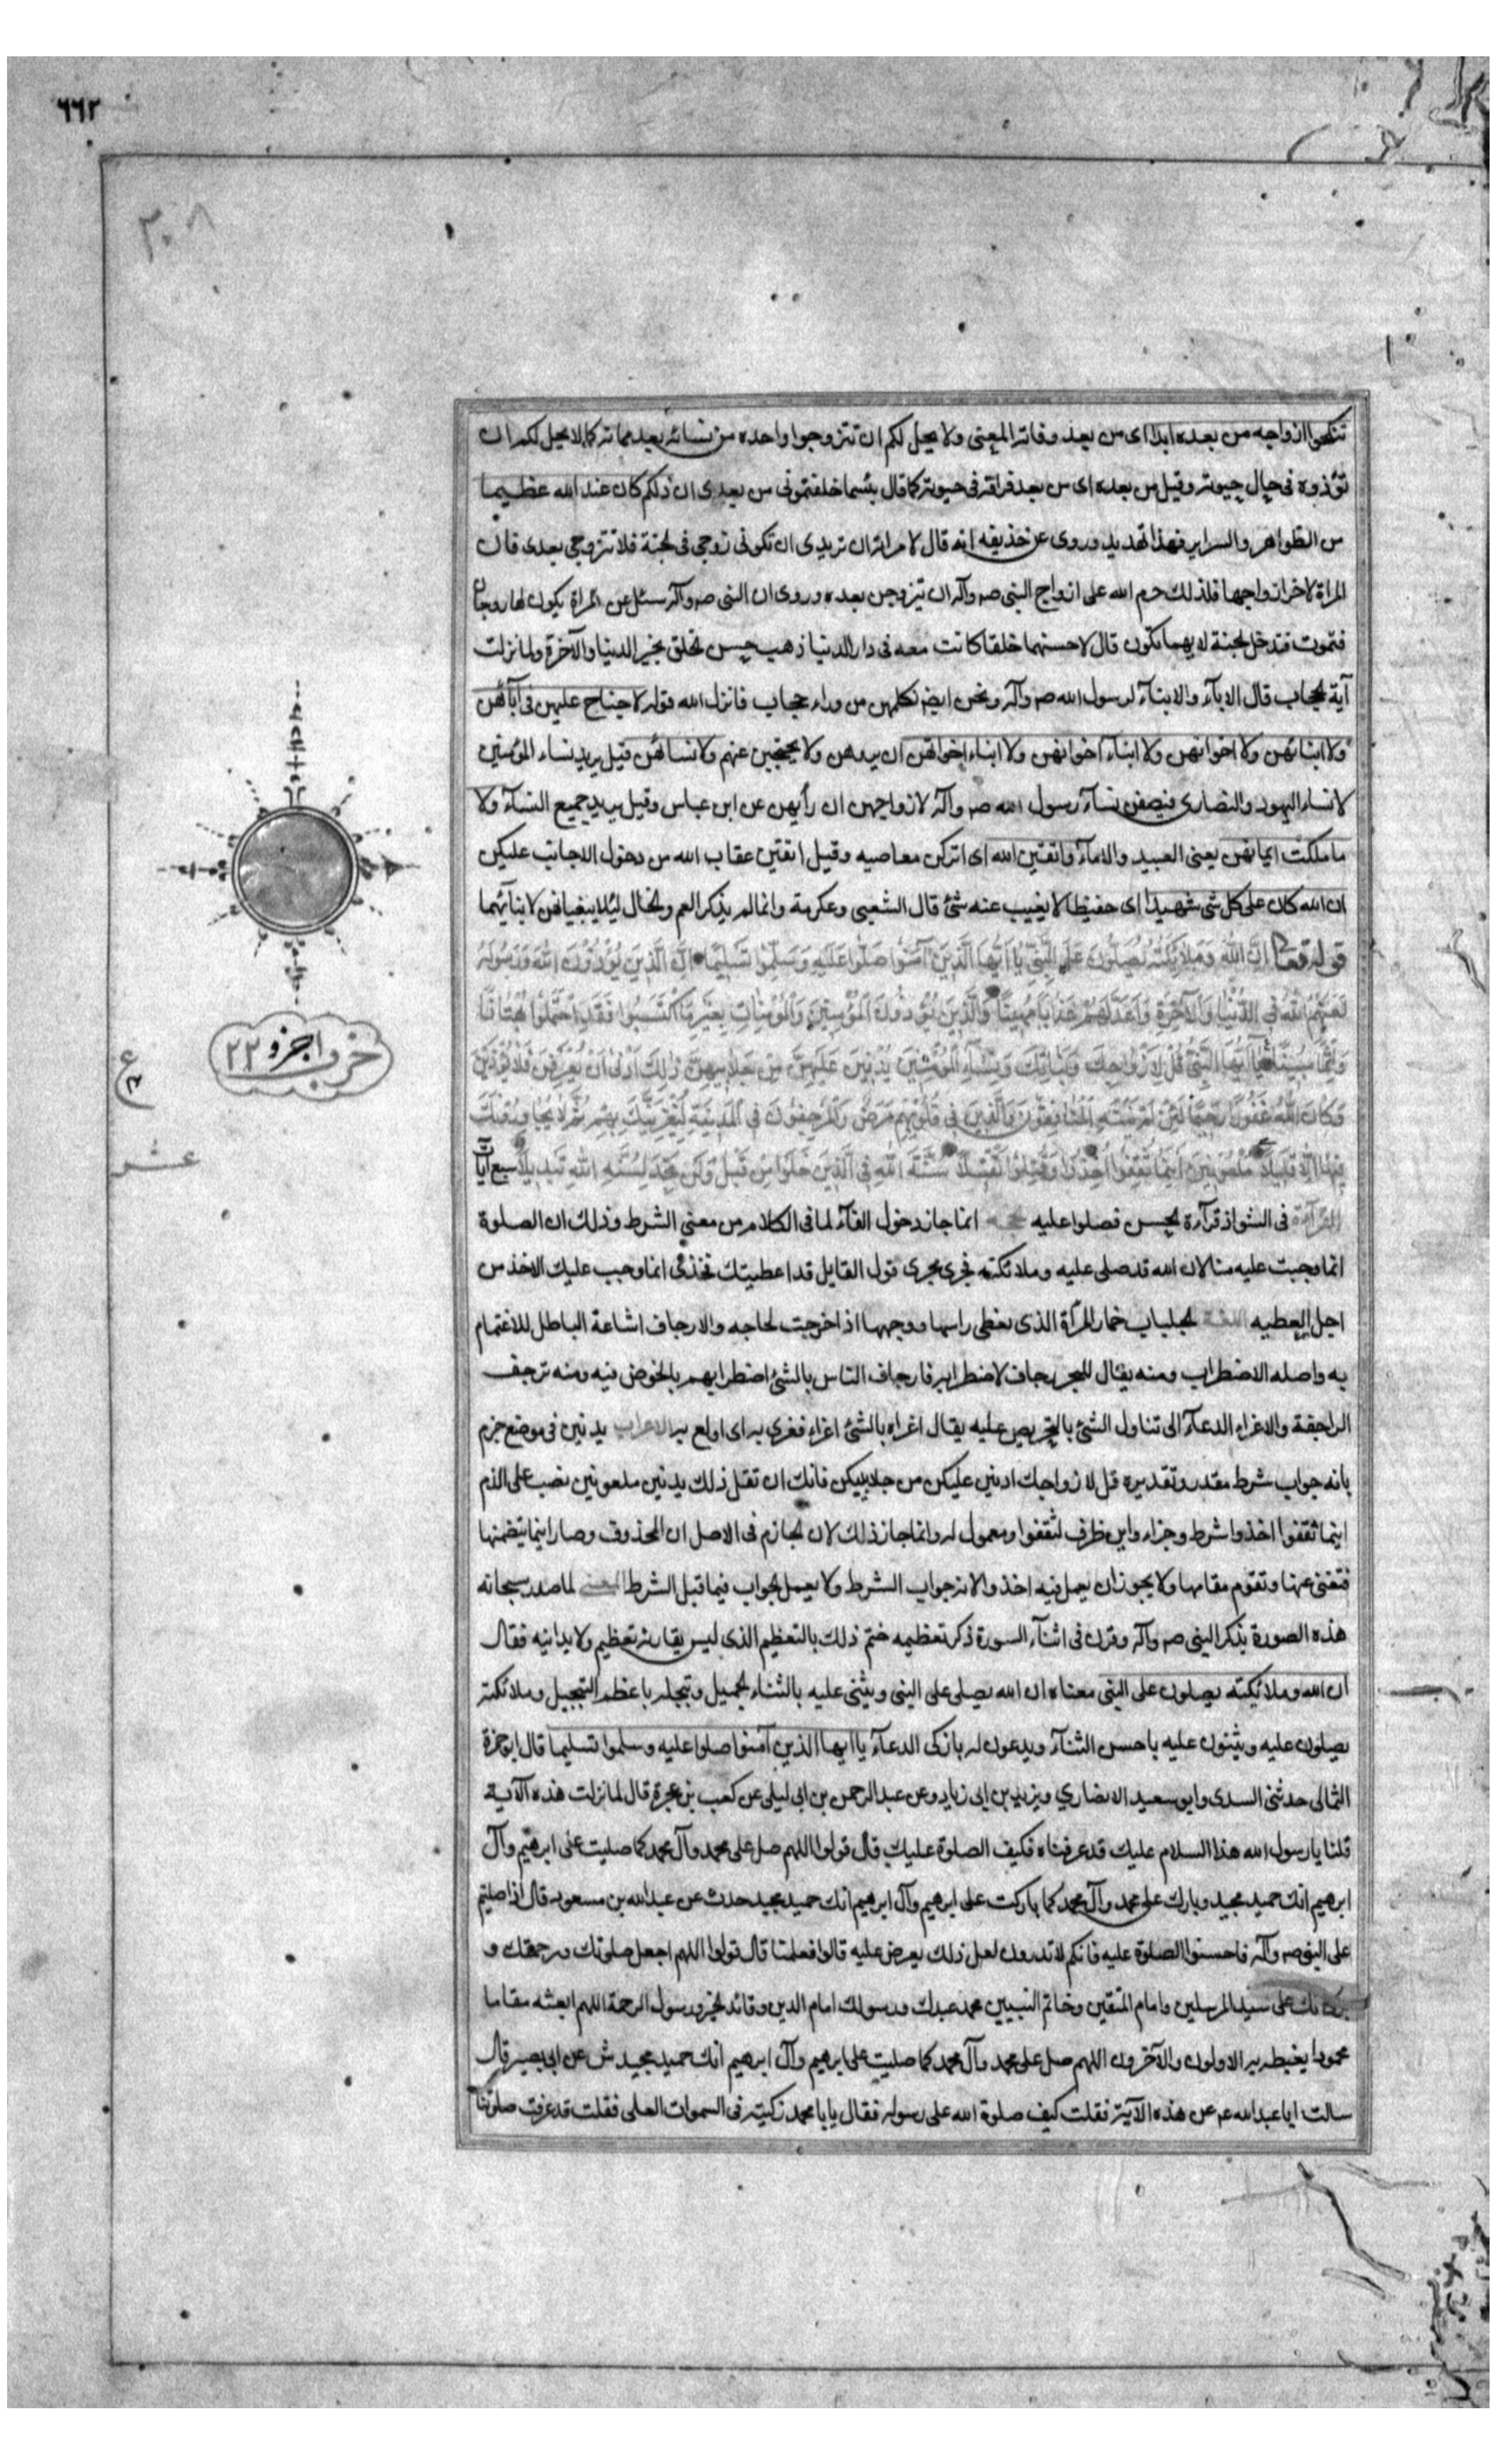 ٦٦٢
٣٠٨
تنكحوا ازواجه من بعده ابدا اى من بعد وفاته المعنى ولا يحل لكم ان تتزوجوا واحده من نسائه بعد مماته كما لا يحل لكم ان
تؤذوه فى حال حيوته وقيل من بعده اى من بعد فراقه فى حيوته كما قال بئسما خلفتمونى من بعدى ان ذلكم كان عند الله عظيما
من الظواهر والسراير فهذا تهديد وروى عن حذيفه انه قال لامراته ان تريدى ان تكونى زوجى فى الجنة فلا تتزوجى بعدى فان
المراة لاخر ازواجها فلذلك حرم الله على ازواج النبى صه وآله ان تتزوجن بعده وروى ان النبى صه وآله سئل عن المراة يكون لها زوجان
فتموت فتدخل الجنة لايهما تكون قال لاحسنهما خلقا كانت معه فى دار الدنيا ذهب حسن الخلق بخير الدنيا والآخرة ولما نزلت
آية الحجاب قال الاباء والابناء لرسول الله صه وآله ونحن ايضا نكلمهن من وراء حجاب فانزل الله قوله لا جناح عليهن فى آبائهن
ولا ابنائهن ولا اخوانهن ولا ابناء اخوانهن ولا ابناء اخواتهن ان يروهن ولا يحتجبن عنهم ولا نسائهن قيل يريد نساء المؤمنين
لا نساء اليهود والنصارى فيصفن نساء رسول الله صه وآله لازواجهن ان رأيهن عن ابن عباس وقيل يريد جميع النساء ولا
ما ملكت ايمانهن يعنى العبيد والاماء واتقين الله اى اتركن معاصيه وقيل اتقين عقاب الله من دخول الاجانب عليكن
ان الله كان على كل شى شهيدا اى حفيظا لا يغيب عنه شئ قال الشعبى وعكرمة وانما لم يذكر العم والخال لئلا ينعتاهن لابنائهما
قوله تعا ان الله وملائكته يصلون على النبى يا ايها الذين آمنوا صلوا عليه وسلموا تسليما ان الذين يؤذون الله ورسوله
لعنهم الله فى الدنيا والآخرة واعد لهم عذابا مهينا والذين يؤذون المؤمنين والمؤمنات بغير ما اكتسبوا فقد احتملوا بهتانا
واثما مبينا يا ايها النبى قل لازواجك وبناتك ونساء المؤمنين يدنين عليهن من جلابيبهن ذلك ادنى ان يعرفن فلا يؤذين
وكان الله غفورا رحيما لئن لم ينته المنافقون والذين فى قلوبهم مرض والمرجفون فى المدينة لنغرينك بهم ثم لا يجاورونك
فيها الا قليلا ملعونين اينما ثقفوا اخذوا وقتلوا تقتيلا سنة الله فى الذين خلوا من قبل ولن تجد لسنة الله تبديلا سبع آيات
القرآءة فى الشواذ قرآءة الحسن فصلوا عليه الحجه انما جاز دخول الفاء لما فى الكلام من معنى الشرط وذلك ان الصلوة
انما وجبت عليه منا لان الله قد صلى عليه وملائكته فجرى مجرى قول القايل قد اعطيتك فخذ اى انما وجب عليك الاخذ من
اجل العطيه اللغة الجلباب خمار المرأة الذى يغطى راسها ووجهها اذا خرجت لحاجه والارجاف اشاعة الباطل للاغتمام
به واصله الاضطراب ومنه يقال للبحر رجاف لاضطرابه فارجاف الناس بالشئ اضطرابهم بالخوض فيه ومنه ترجف
الراجفة والاغراء الدعاء الى تناول الشئ بالتحريص عليه يقال اغراه بالشئ اغراء فغرى به اى اولع به الاعراب يدنين فى موضع جزم
بانه جواب شرط مقدر وتقديره قل لازواجك ادنين عليكن من جلابيبكن فانك ان تقل ذلك يدنين ملعونين نصب على الذم
اينما ثقفوا اخذوا شرط وجزاء واين ظرف لثقفوا ومعمول له وانما جاز ذلك لان الجازم فى الاصل ان المحذوف وصار اينما يتضمنها
فتغنى عنها وتقوم مقامها ولا يجوز ان يعمل فيه اخذوا لانه جواب الشرط ولا يعمل الجواب فيما قبل الشرط المعنى لما صدر سبحانه
هذه الصورة بذكر النبى صه وآله وقرن فى اثناء السورة ذكر تعظيمه ختم ذلك بالتعظيم الذى ليس يقاربه تعظيم ولا يدانيه فقال
ان الله وملائكته يصلون على النبى معناه ان الله يصلى على النبى ويثنى عليه بالثناء الجميل ويبجله باعظم التبجيل وملائكته
يصلون عليه ويثنون عليه باحسن الثناء ويدعون له بازكى الدعاء يا ايها الذين آمنوا صلوا عليه وسلموا تسليما قال ابو حمزة
الثمالى حدثنى السدى وابو سعيد الانصاري ويزيد بن ابى زياد وعن عبد الرحمن بن ابى ليلى عن كعب بن عجرة قال لما نزلت هذه الآية
قلنا يا رسول الله هذا السلام عليك قد عرفناه فكيف الصلوة عليك قال قولوا اللهم صل على محمد وآل محمد كما صليت على ابرهيم وآل
ابرهيم انك حميد مجيد وبارك على محمد وآل محمد كما باركت على ابرهيم وآل ابرهيم انك حميد مجيد حدث عن عبد الله بن مسعود قال اذا صليتم
على النبى صه وآله فاحسنوا الصلوة عليه فانكم لا تدرون لعل ذلك يعرض عليه قالوا فعلمنا قال قولوا اللهم اجعل صلوتك ورحمتك و
بركاتك على سيد المرسلين وامام المتقين وخاتم النبيين محمد عبدك ورسولك امام الدين وقائد الخير ورسول الرحمة اللهم ابعثه مقاما
محمودا يغبطه به الاولون والآخرون اللهم صل على محمد وآل محمد كما صليت على ابرهيم وآل ابرهيم انك حميد مجيد ش عن ابى بصير قال
سالت ابا عبد الله عم عن هذه الآية فقلت كيف صلوة الله على رسوله فقال يا با محمد زكيته فى السموات العلى فقلت قد عرفت صلوتنا
اجزو ٢٢
ع
عشر